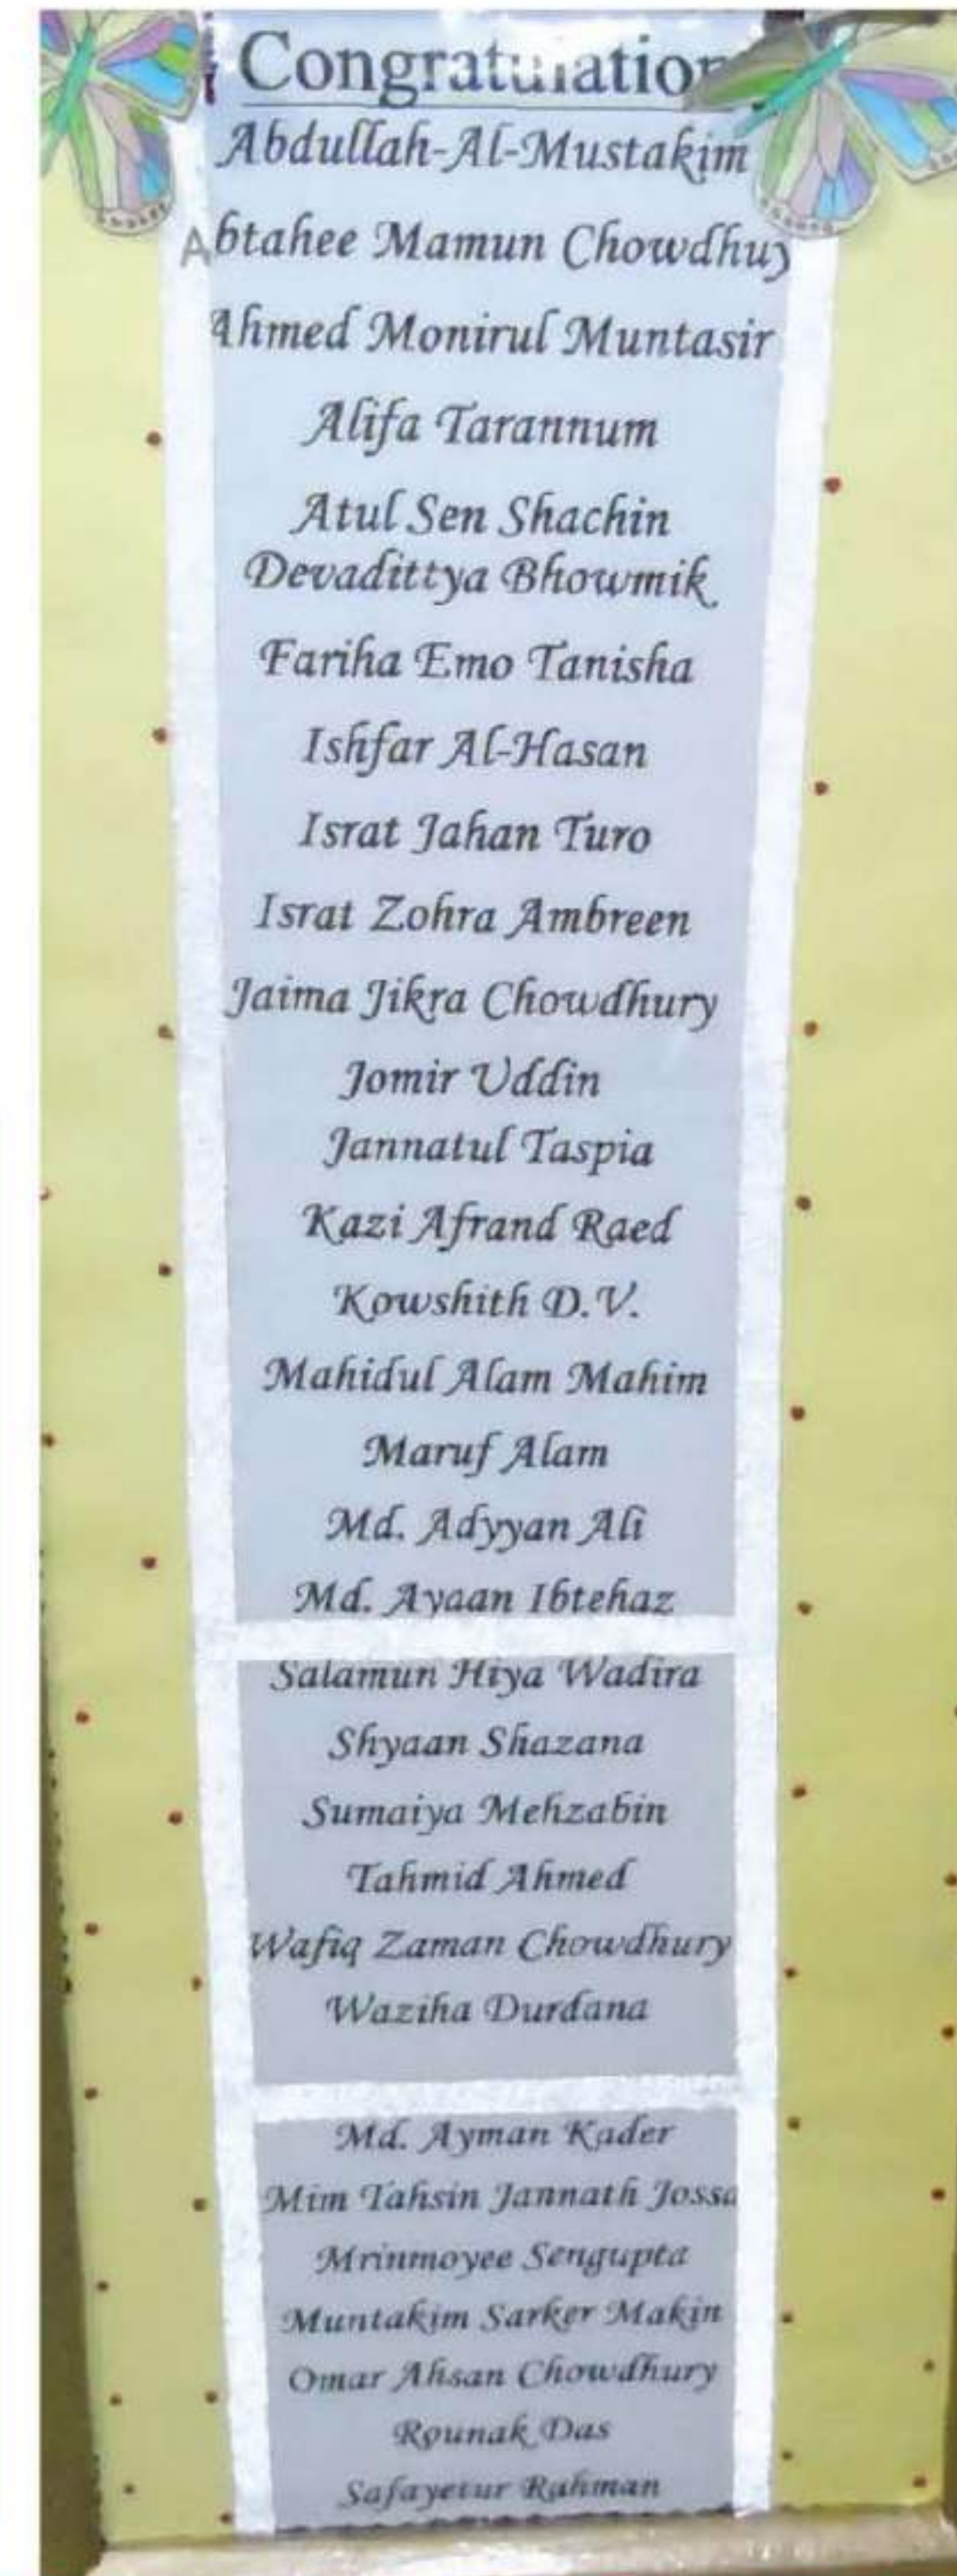 Congratulation
Abdullah-Al-Mustakim
Abtahee Mamun Chowdhuy
Ahmed Monirul Muntasir
Alifa Tarannum
Atul Sen Shachin
Devadittya Bhowmik
Fariha Emo Tanisha
Ishfar Al-Hasan
Israt Jahan Turo
Israt Zohra Ambreen
Jaima Jikra Chowdhury
Jomir Uddin
Jannatul Taspia
Kazi Afrand Raed
Kowshith D.V.
Mahidul Alam Mahim
Maruf Alam
Md. Adyyan Ali
Md. Ayaan Ibtehaz
Salamun Hiya Wadira
Shyaan Shazana
Sumaiya Mehzabin
Tahmid Ahmed
Wafiq Zaman Chowdhury
Waziha Durdana
Md. Ayman Kader
Mim Tahsin Jannath Jossa
Mrinmoyee Sengupta
Muntakim Sarker Makin
Omar Ahsan Chowdhury
Rounak Das
Safayetur Rahman